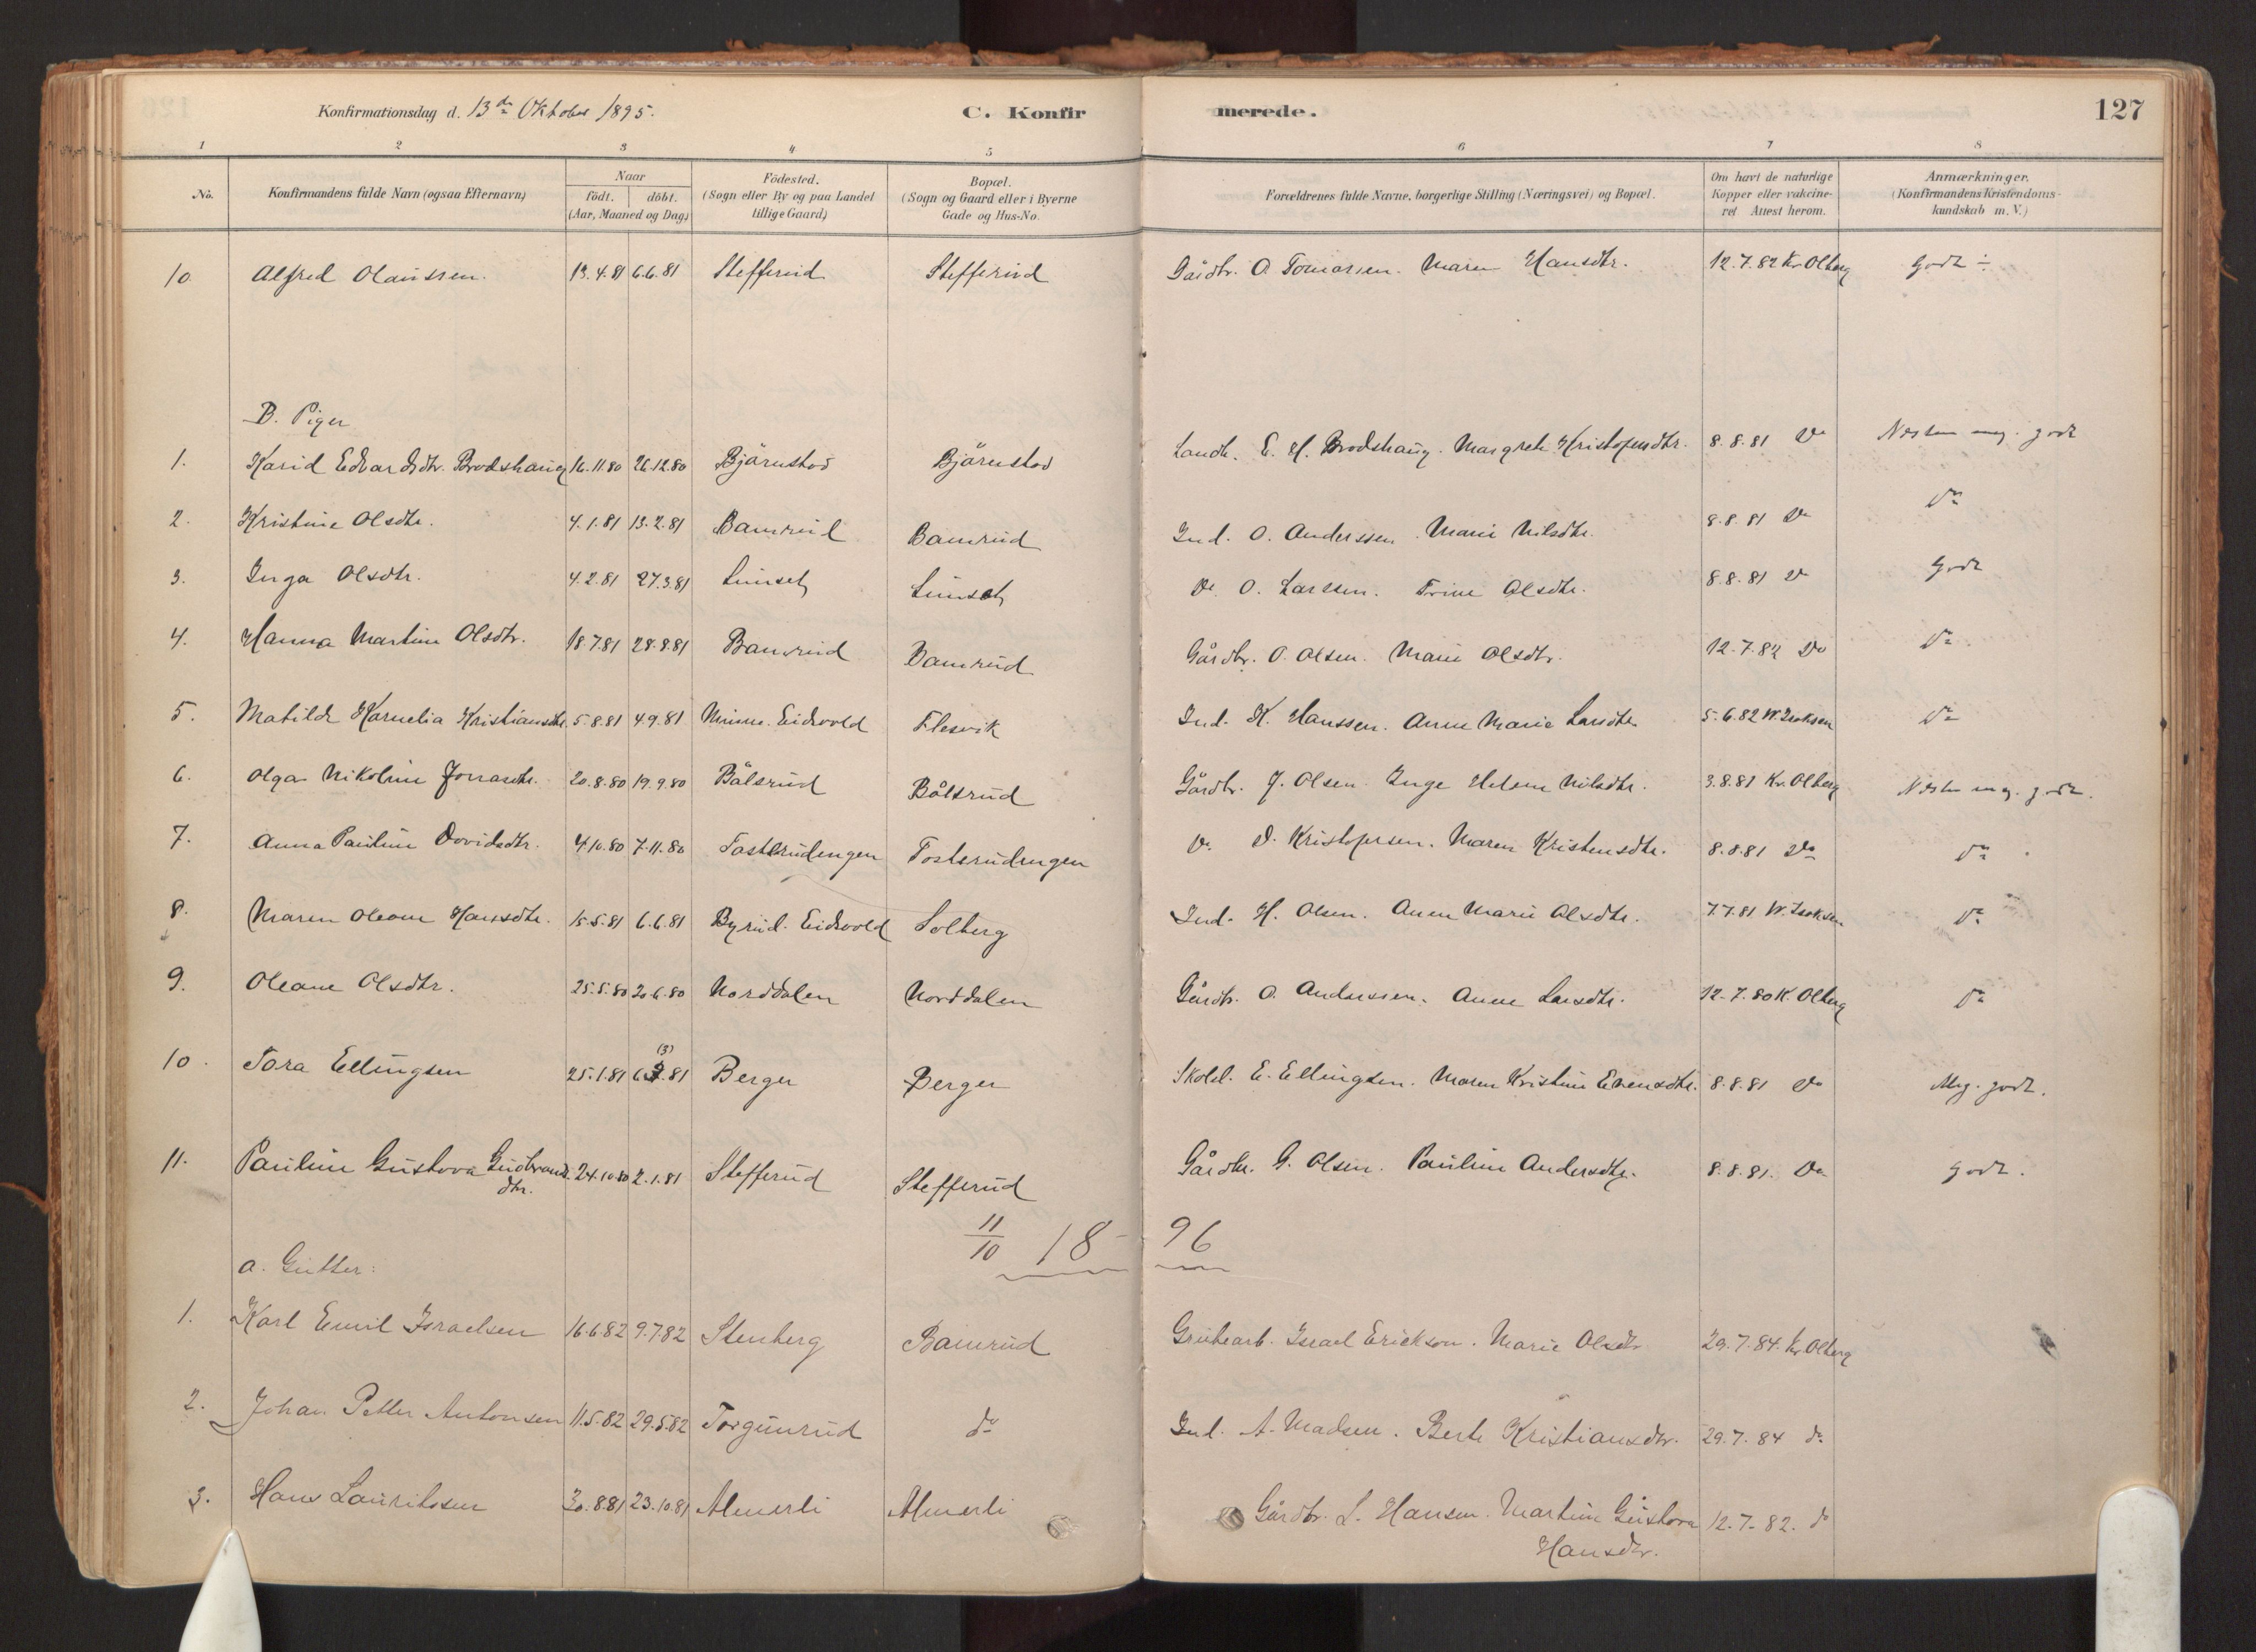 Konfirmationsdag d. 13de Oktober 1895. C. Konfirmerede. 127
1 2 3 4 5 6 7 8
No. Konfirmandens fulde Navn (ogsaa Efternavn) Naar födt. döbt. (Aar, Maaned og Dag) Födested. (Sogn eller By og paa Landet tillige Gaard) Bopæl. (Sogn og Gaard eller i Byerne Gade og Hus-No. Forældrenes fulde Navne, borgerlige Stilling (Næringsvei) og Bopæl. Om havt de naturlige Kopper eller vakcineret Attest herom. Anmærkninger. (Konfirmandens Kristendomskundskab m. V.)
10. Alfred Olaussen. 13.4.81 6.6.81 Stefferud Stefferud Gårdbr. O. Tomassen. Maren Hansdtr. 12.7.82 Kr. Olberg Godt ÷
B. Piger
1. Karid Edvardsdtr. Brodshaug 16.11.80 26.12.80 Bjørnstad Bjørnstad Landh. E. H. Brodshaug. Margrete Kristofersdtr. 8.8.81 Do Næsten meg. godt
2. Kristine Olsdtr. 4.1.81 13.2.81 Bamrud Bamrud Ind. O. Anderssen. Marie Nilsdtr. 8.8.81 Do Do
3. Inga Olsdtr. 4.2.81 27.3.81 Linset Linset Do O. Larssen. Trine Olsdtr. 8.8.81 Do Godt
4. Hanna Martine Olsdtr. 18.7.81 28.8.81 Bamrud Bamrud Gårdbr. O. Olsen. Marie Olsdtr. 12.7.82 Do Do
5. Matilde Kornelia Kristiansdtr. 5.8.81 4.9.81 Minne. Eidsvold Flesvik Ind. K. Hanssen. Anne Marie Larsdtr. 5.6.82 W. Isaksen Do
6. Olga Nikoline Jonasdtr. 20.8.80 19.9.80 Bålsrud Bålsrud Gårdbr. J. Olsen. Inge Helene Nilsdtr. 3.8.81 Kr. Olberg Næsten meg. godt.
7. Anna Pauline Davidsdtr. 4.10.80 7.11.80 Tosterudengen Tosterudengen Do D. Kristofersen. Maren Kristensdtr. 8.8.81 Do Do
8. Maren Oleane Hansdtr. 15.5.81 6.6.81 Byrud. Eidsvold Solberg Ind. H. Olsen. Anne Marie Olsdtr. 7.7.81 W. Isaksen Do
9. Oleane Olsdtr. 25.5.80 20.6.80 Norddalen Norddalen Gårdbr. O. Anderssen. Anne Larsdtr. 12.7.80 K. Olberg Do
(3)
10. Tora Ellingsen 25.1.81 6.3.81 Berger Berger Skolel. E. Ellingsen. Maren Kristine Evensdtr. 8.8.81 Do Meg. godt.
11. Pauline Gustava Gudbrandsdtr. 24.10.80 2.1.81 Stefferud Stefferud Gårdbr. G. Olsen. Pauline Andersdtr. 8.8.81. Do Godt.
11/10 18-96
a. Gutter:
1. Karl Emil Israelsen 16.6.82 9.7.82 Stenberg Bamrud Grubearb. Israel Erickson. Marie Olsdtr 29.7.84. Kr. Olberg
2. Johan Petter Antonsen 11.5.82 29.5.82 Torgunrud do Ind. A. Madsen. Berte Kristiansdtr. 29.7.84 do
3. Hans Lauritssen 30.8.81 23.10.81 Almerli Almerli Gårdbr. L. Hansen. Martine Gustava 12.7.82. do
Hansdtr.